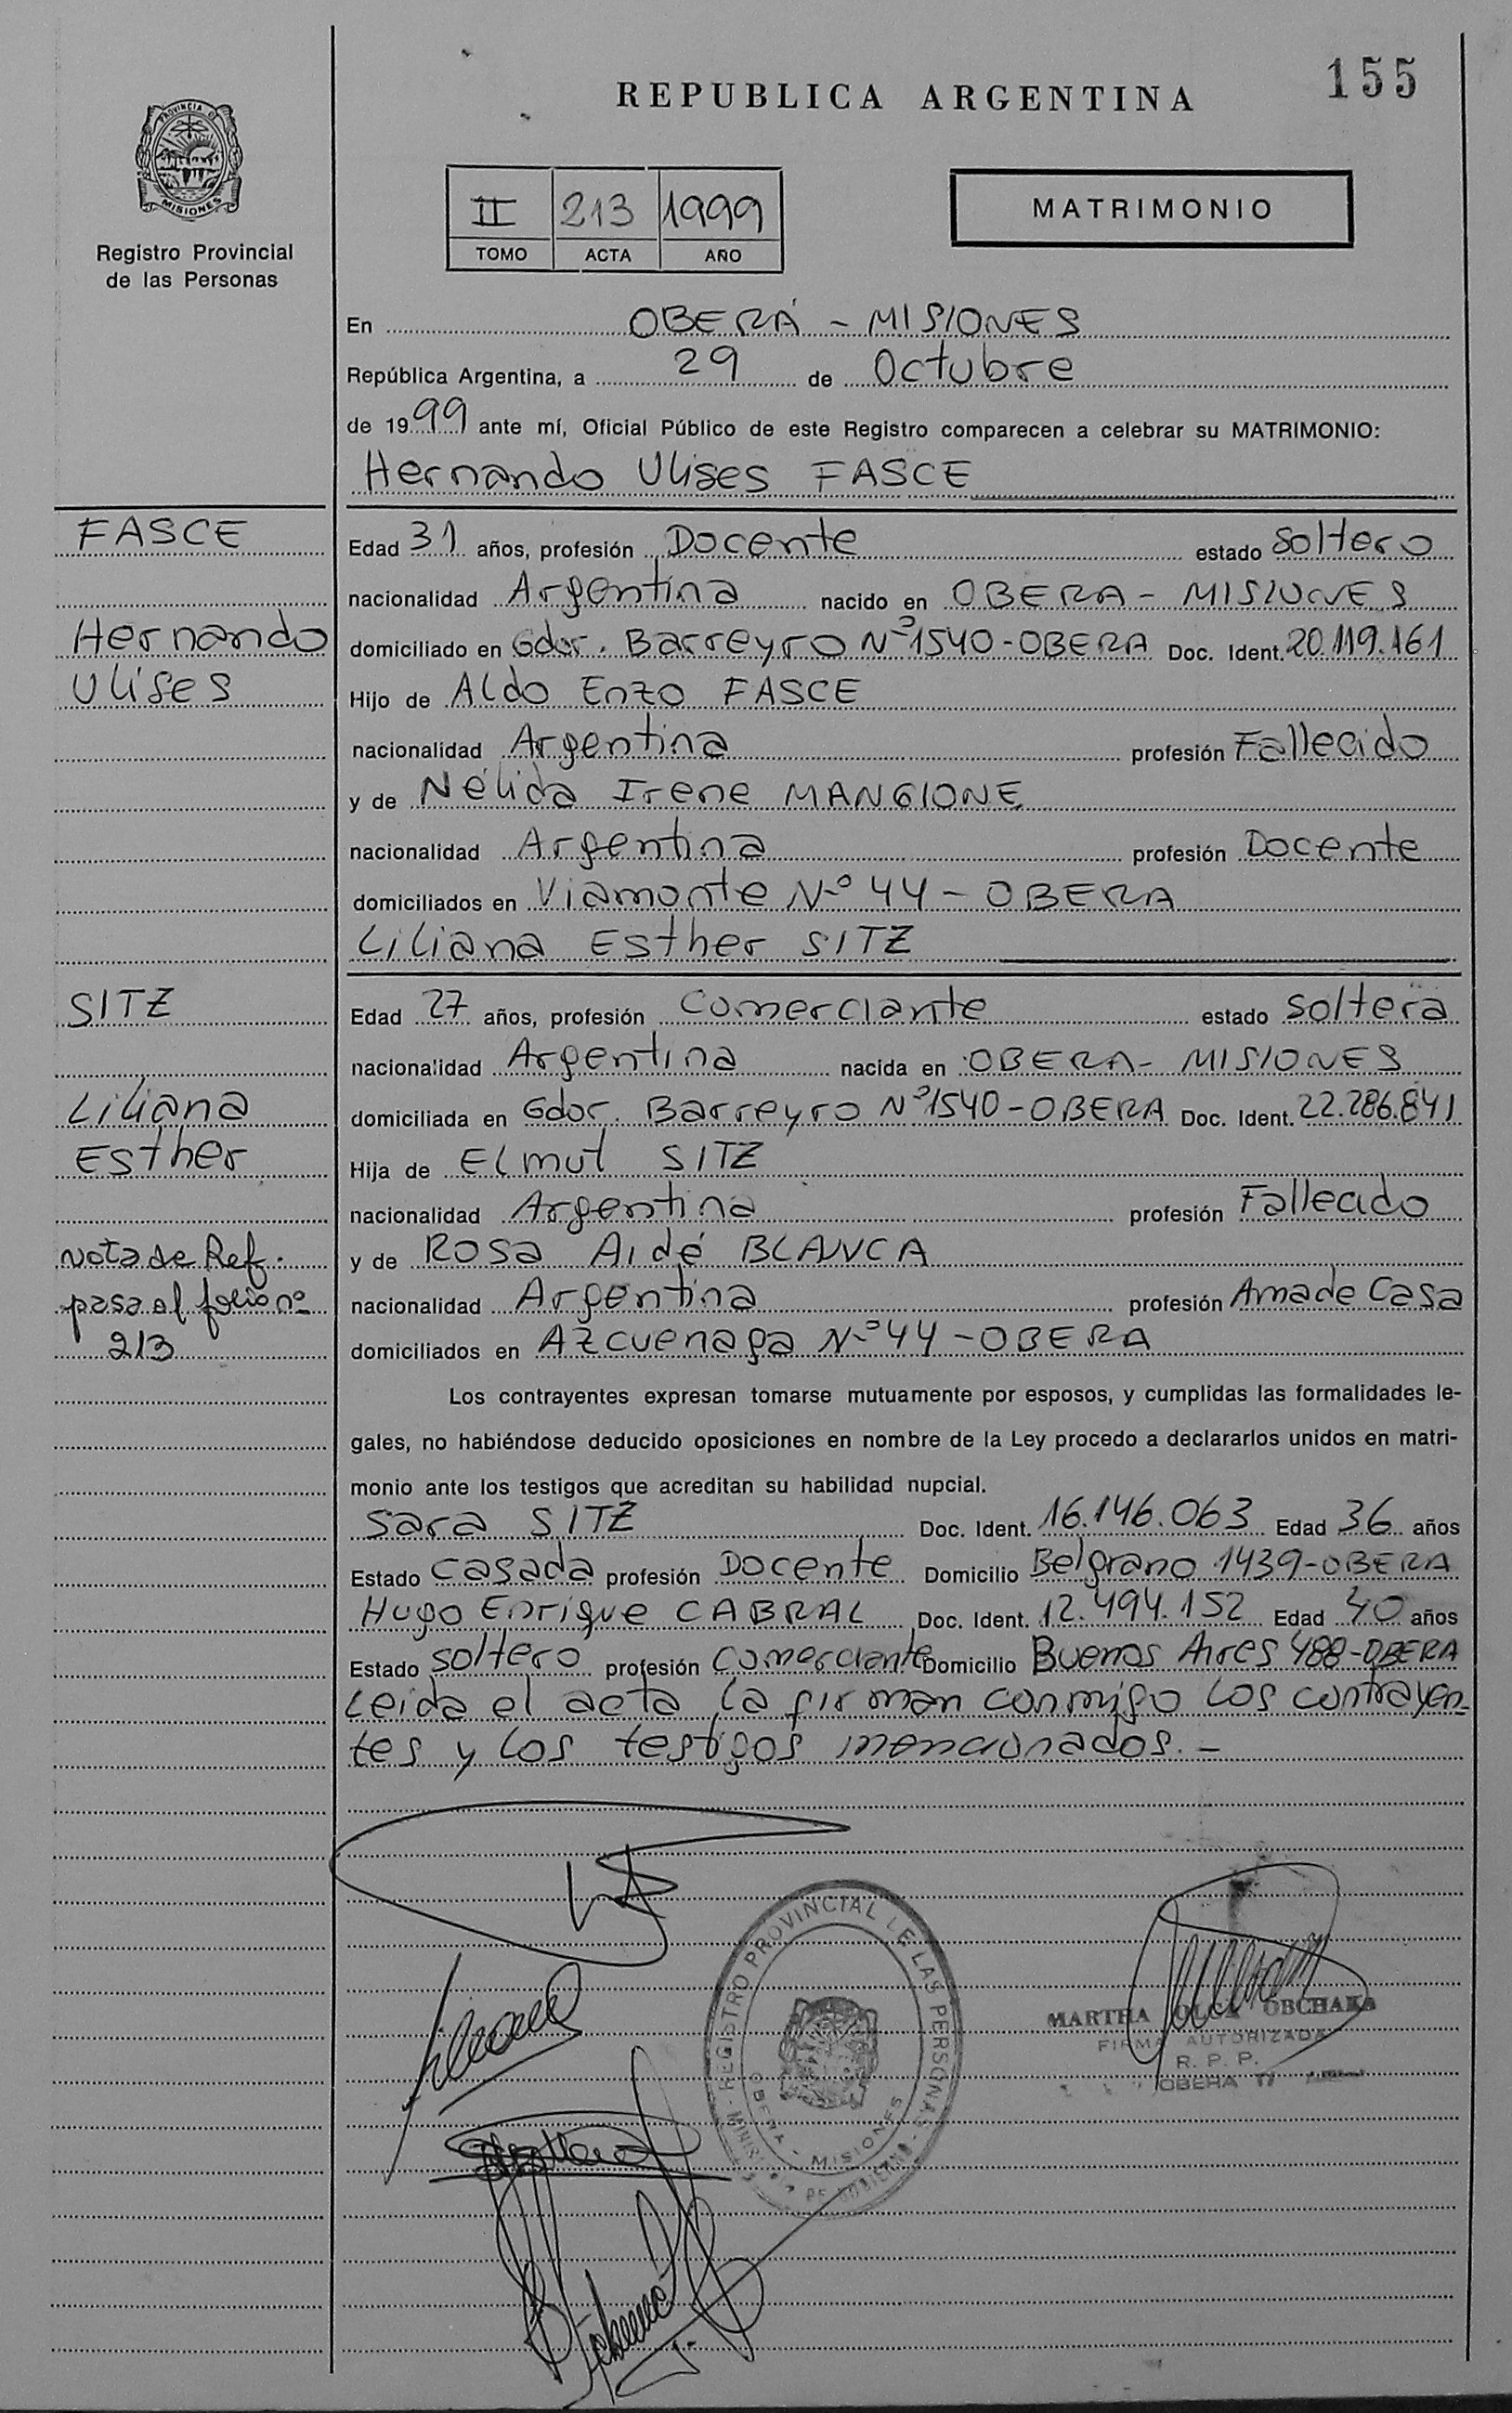 155
REPUBLICA ARGENTINA
PROVINCIA DE
MISIONES
Registro Provincial
de las Personas
II 213 1999
TOMO ACTA AÑO
MATRIMONIO
En OBERÁ - MISIONES
República Argentina, a 29 de Octubre
de 1999 ante mí, Oficial Público de este Registro comparecen a celebrar su MATRIMONIO:
Hernando Ulises FASCE
FASCE
Edad 31 años, profesión Docente estado Soltero
nacionalidad Argentina nacido en OBERA - MISIONES
Hernando
domiciliado en Gdor. Barreyro Nº 1540-OBERA Doc. Ident. 20.119.161
Ulises
Hijo de Aldo Enzo FASCE
nacionalidad Argentina profesión Fallecido
y de Nélida Irene MANGIONE
nacionalidad Argentina profesión Docente
domiciliados en Viamonte Nº 44 - OBERA
Liliana Esther SITZ
SITZ
Edad 27 años, profesión Comerciante estado Soltera
nacionalidad Argentina nacida en OBERA - MISIONES
Liliana
domiciliada en Gdor. Barreyro Nº 1540-OBERA Doc. Ident. 22.286.841
Esther
Hija de Elmut SITZ
nacionalidad Argentina profesión Fallecido
Nota de Ref.
y de Rosa Aidé BLANCA
pasa al folio nº
nacionalidad Argentina profesión Ama de Casa
213
domiciliados en Azcuenaga Nº 44 - OBERA
Los contrayentes expresan tomarse mutuamente por esposos, y cumplidas las formalidades le-
gales, no habiéndose deducido oposiciones en nombre de la Ley procedo a declararlos unidos en matri-
monio ante los testigos que acreditan su habilidad nupcial.
Sara SITZ Doc. Ident. 16.146.063 Edad 36 años
Estado Casada profesión Docente Domicilio Belgrano 1439-OBERA
Hugo Enrique CABRAL Doc. Ident. 12.494.152 Edad 40 años
Estado Soltero profesión Comerciante Domicilio Buenos Aires 488-OBERA
Leida el acta la firman conmigo los contrayen-
tes y los testigos mencionados. -
REGISTRO PROVINCIAL DE LAS PERSONAS
OBERA - MISIONES
MARTHA OLGA OBCHAKA
FIRMA AUTORIZADA
R. P. P.
OBERA